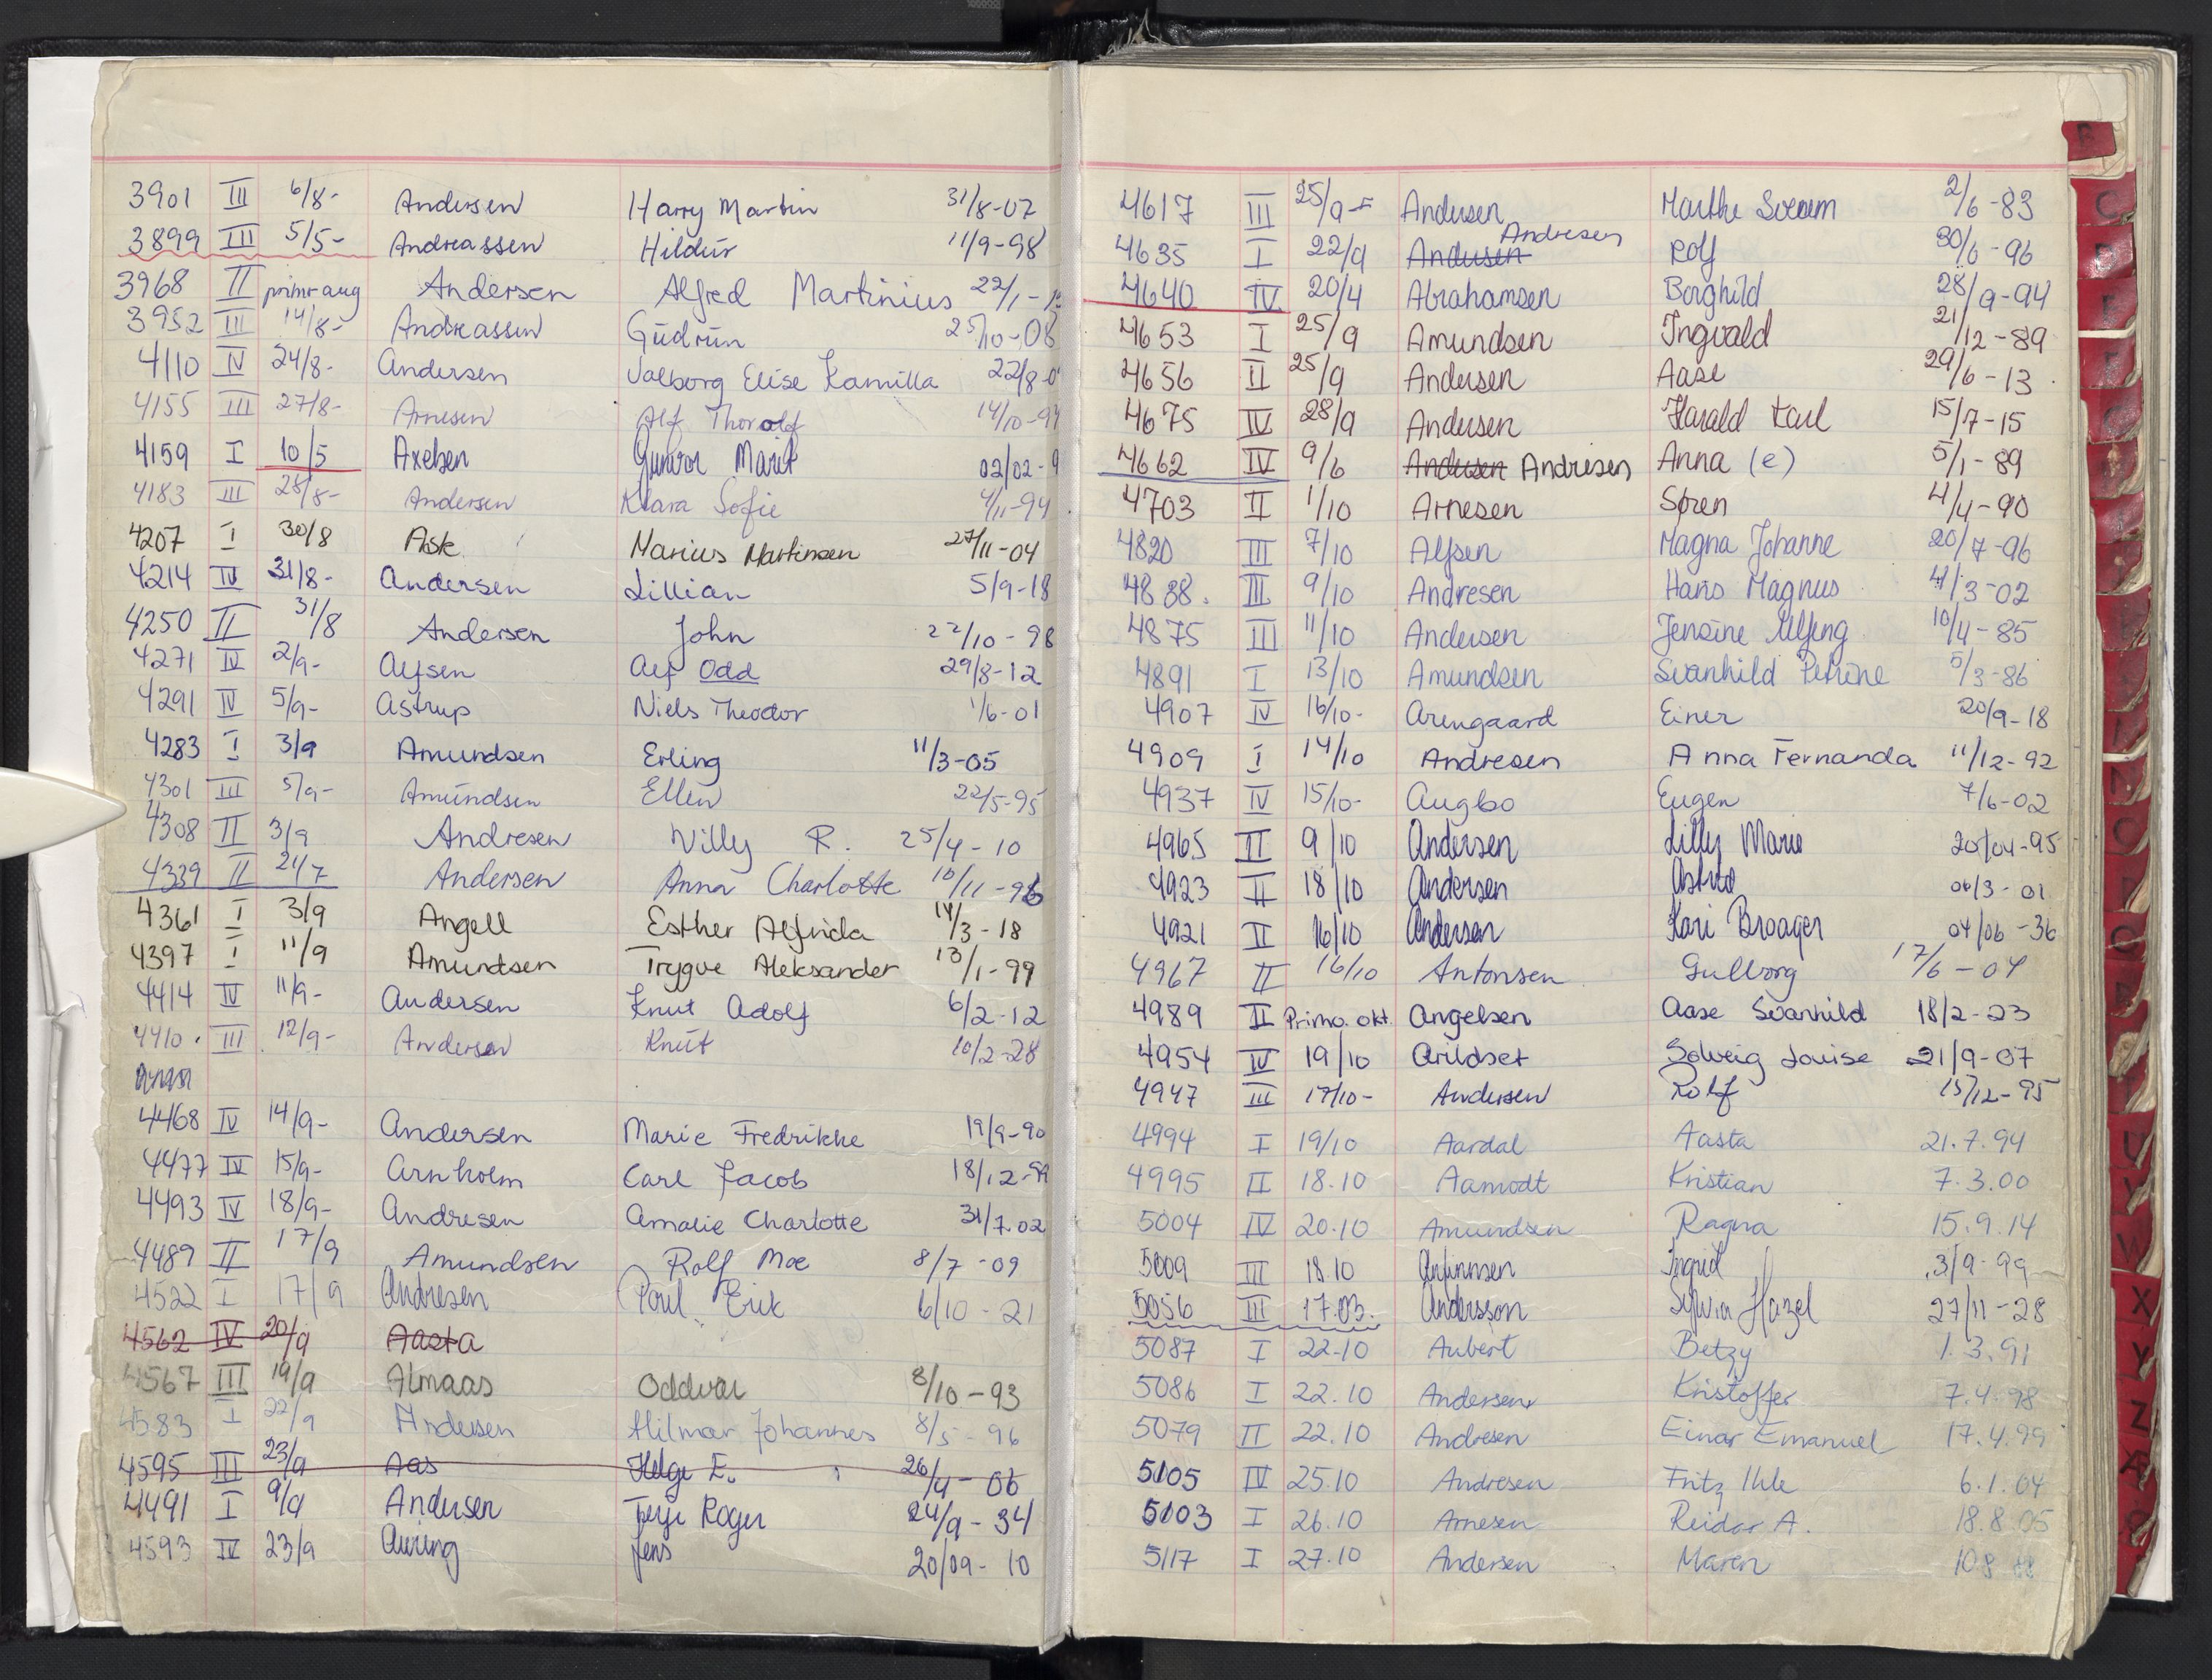 3901 III 6/8- Andersen Harry Martin 31/8-07
3899 III 5/5- Andreassen Hildur 11/9-98
3968 II primo aug Andersen Alfred Martinius 22/1-
3952 III 14/8- Andreassen Gudrun 25/10-08
4110 IV 24/8- Andersen Valborg Elise Kamilla 22/8-0
4155 III 27/8- Arnesen Alf Thorolf 14/10-94
4159 I 10/5 Axelsen Gunvor Marit 02/02-9
4183 III 28/8- Andersen Klara Sofie 4/11-94
4207 I 30/8 Ask Marius Martinsen 27/11-04
4214 IV 31/8- Andersen Lillian 5/9-18
4250 II 31/8 Andersen John 22/10-98
4271 IV 2/9- Alfsen Alf Odd 29/8-12
4291 IV 5/9- Astrup Niels Theodor 1/6-01
4283 I 3/9 Amundsen Erling 11/3-05
4301 III 5/9- Amundsen Ellen 22/5-95
4308 II 3/9 Andresen Willy R. 25/4-10
4339 II 24/7 Andersen Anna Charlotte 10/11-96
4361 I 3/9 Angell Esther Alfrida 14/3-18
4397 I 11/9 Amundsen Trygve Aleksander 13/1-99
4414 IV 11/9- Andersen Knut Adolf 6/2-12
4410. III 12/9- Andersen Knut 10/2-28
4468 IV 14/9- Andersen Marie Fredrikke 19/9-90
4477 IV 15/9- Arnholm Carl Jacob 18/12-99
4493 IV 18/9- Andresen Amalie Charlotte 31/7.02
4489 II 17/9 Amundsen Rolf Moe 8/7-09
4522 I 17/9 Andresen Poul Erik 6/10-21
4562 IV 20/9 Aasta
4567 III 19/9 Almaas Oddvar 8/10-93
4583 I 22/9 Andersen Hilmar Johannes 8/5-96
4595 III 23/9 Aas Helge E. 26/4-06
4491 I 9/9 Andersen Terje Roger 24/9-34
4593 IV 23/9 Auring Jens 20/09-10
4617 III 25/9- Andersen Marthe 2/6-83
4635 I 22/9 Andersen Andresen Rolf 30/6-96
4640 IV 20/4 Abrahamsen Borghild 28/9-94
4653 I 25/9 Amundsen Ingvald 21/12-89
4656 II 25/9 Andersen Aase 29/6-13
4675 IV 28/9 Andersen Harald Karl 15/7-15
4662 IV 9/6 Andersen Andresen Anna (e) 5/1-89
4703 II 1/10 Arnesen Søren 4/4-90
4820 III 7/10 Alfsen Magna Johanne 20/7-96
4838. III 9/10 Andresen Hans Magnus 4/3-02
4875 III 11/10 Andersen Jensine 10/4-85
4891 I 13/10 Amundsen Svanhild Petrine 5/3-86
4907 IV 16/10- Arengaard Einer 20/9-18
4909 I 14/10 Andresen Anna Fernanda 11/12-92
4937 IV 15/10- Augbo Eugen 7/6-02
4965 II 9/10 Andersen Lilly Marie 20/04-95
4923 II 18/10 Andersen Astrid 06/3-01
4921 II 16/10 Andersen Kari Broager 04/06-36
4967 II 16/10 Antonsen Gullborg 17/6-04
4989 II Primo. okt. Angelsen Aase Svanhild 18/2-23
4954 IV 19/10 Arildset Solveig Louise 21/9-07
4947 III 17/10- Andersen Rolf 15/12-95
4994 I 19/10 Aardal Aasta 21.7.94
4995 II 18.10 Aamodt Kristian 7.3.00
5004 IV 20.10 Amundsen Ragna 15.9.14
5009 III 18.10 Arfinnsen Ingrid 3/9-99
5056 III 17.03. Andersson Sylvia Hazel 27/11-28
5087 I 22.10 Aubert Betzy 1.3.91
5086 I 22.10 Andersen Kristoffer 7.4.98
5079 II 22.10 Andresen Einar Emanuel 17.4.99
5105 IV 25.10 Andresen Fritz Ihle 6.1.04
5103 I 26.10 Arnesen Reidar A. 18.8.05
5117 I 27.10 Andersen Maren 10.8.88
B
C
O
U
V
W
X
Y
Z